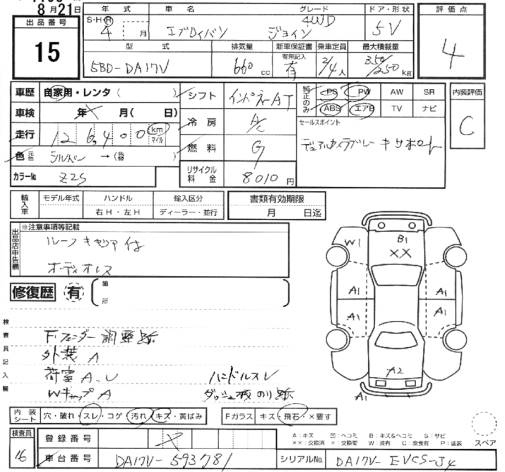 8月21日
出品番号
15
年式 車名 グレード ドア・形状
S・H・R 4 月 エブリイバン 4WD ジョイン 5V
評価点
4
型式 排気量 新車保証書 乗車定員 最大積載量
5BD-DA17V 660cc 有 2/4人 350/250kg
車歴 自家用・レンタ( )
車検 年 月( 日)
走行 126,400 km マイル
色 シルバー →( )
カラーNo Z2S
シフト インパネAT
冷房 A/C
燃料 G
リサイクル料金 8010円
純正のみ PS PW AW SR
ABS エアB TV ナビ
セールスポイント
デュアルカメラブレーキサポート
内装評価
C
輸入車 モデル年式 ハンドル 輸入区分
右H・左H ディーラー・並行
書類有効期限
月 日迄
出品店申告欄
※注意事項等記載
ルーフキャリア付
オーディオレス
修復歴 有
検査員記入欄
外装 A
荷室 A.U
ハンドルスレ
W A
W1 B1 XX
A1 A1
A1 A1
A2
内装シート 穴・破れ・スレ・コゲ 汚れ・キズ・黄ばみ
Fガラス キズ・飛石・×要す
A:キズ U:ヘコミ B:キズ&ヘコミ S:サビ
スペア
検査員
16
登録番号
車台番号 DA17V-593781
シリアルNo. DA17V-EVCS-J4